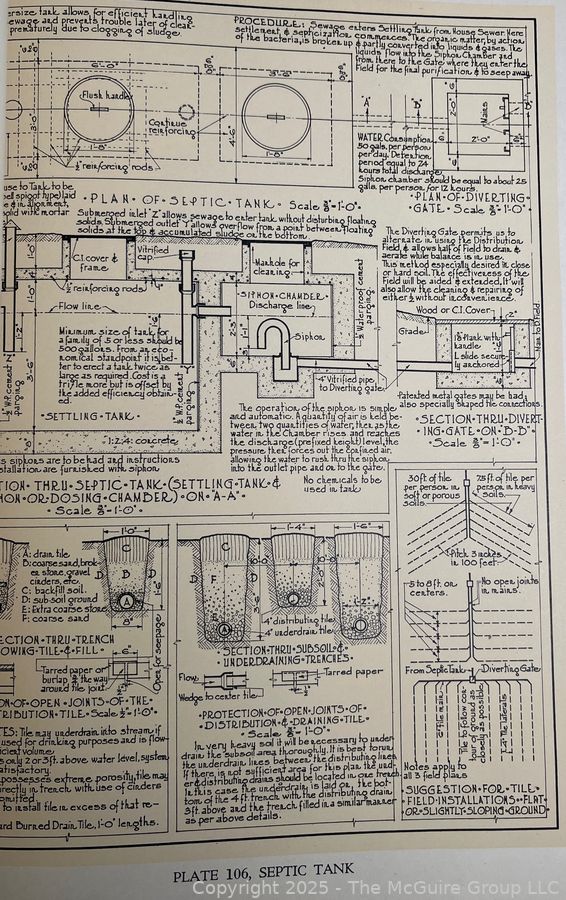 ersize tank allows for efficient handling
ewage and prevents trouble later of clear-
prematurely due to clogging of sludge
PROCEDURE: Sewage enters Settling Tank from House Sewer. Here
settlement, & septicization commences. The organic matter, by action
of the bacteria, is broken up & partly converted into liquids & gases. The
liquids flow into the Siphon Chamber and
from there to the Gate where they enter the
Field for the final purification & to seep away.
6'-0"
Flush handle
Continue
reinforcing
3'-0"
4'-6"
1'-8"
1'-8"
½" reinforcing rods
A
B
2'-0"
2'-0"
Mains
WATER Consumption
50 gals. per person
per day. Detention
period equal to 24
hours total discharge.
Siphon chamber should be equal to about 25
gals. per person for 12 hours.
PLAN OF SEPTIC TANK Scale ⅜"=1'-0"
PLAN OF DIVERTING
GATE Scale ⅜"=1'-0"
use to Tank to be
bell spigot type) laid
e & in alignment,
solid with mortar
Submerged inlet "Z" allows sewage to enter tank without disturbing floating
solids. Submerged outlet "Y" allows overflow from a point between floating
solids at the top & accumulated sludge on the bottom
The Diverting Gate permits us to
alternate in using the Distribution
Field, & allows half of Field to drain &
aerate while balance is in use.
This method especially desired in close
or hard soil. The effectiveness of the
Field will be aided & extended. It will
also allow the cleaning & repairing of
either ½ without inconvenience.
C.I. cover &
frame
Vitrified
cap
Manhole for
cleaning
½" reinforcing rods
Flow line
SIPHON CHAMBER
Discharge line
Siphon
½" Waterproof cement
parging
Grade
Wood or C.I. Cover
Main to D. Field
18" tank with
handle
L slide secure-
ly anchored
Minimum size of tank for
a family of 5 or less should be
500 gallons. From an eco-
nomical standpoint it is bet-
ter to erect a tank twice as
large as required. Cost is a
trifle more but is offset by
the added efficiency obtain-
½" W.P. cement
parging
½" W.P. Cement
parging
SETTLING TANK
1:2:4: concrete
4" Vitrified pipe
to Diverting gate
Patented metal gates may be had
also specially shaped tile connections.
SECTION THRU DIVERT-
ING GATE ON "B-B"
Scale ⅜"=1'-0"
The operation of the siphon is simple
and automatic. A quantity of air is held be-
tween two quantities of water, then as the
water in the Chamber rises and reaches
the discharge (pre-fixed height) level, the
pressure then forces out the confined air,
allowing the water to rush thru the siphon
into the outlet pipe and on to the gate.
s siphons are to be had and instructions
stallation are furnished with siphon.
TION THRU SEPTIC TANK (SETTLING TANK &
HON OR DOSING CHAMBER) ON "A-A"
Scale ⅜"=1'-0"
No chemicals to be
used in tank
30 ft of tile
per person in
soft or porous
soils.
75 ft. of tile per
person in heavy
soils.
Pitch 3 inches
in 100 feet.
5 to 8 ft. on
centers.
No open joints
in mains.
From Septic Tank
Diverting Gate
4" tile main
Tile to follow con-
tour of ground as
closely as possible
4" tile laterals
Notes apply to
all 3 field plans
SUGGESTION FOR TILE
FIELD INSTALLATIONS FLAT
OR SLIGHTLY SLOPING GROUND
A: drain tile
B: coarse sand, brok-
en stone, gravel
cinders, etc.
C: backfill soil.
D: sub-soil ground
E: Extra coarse stone
F: coarse sand
1'-0"
1'-6"
8"
1'-4"
1'-6"
3'-6"
4" distributing tile
4" underdrain tile
ECTION THRU TRENCH
OWING TILE & FILL
SECTION THRU SUBSOIL &
UNDERDRAINING TRENCHES
Open for seepage
Tarred paper or
burlap ⅔ the way
around tile joint
Flow
Tarred paper
Wedge to center tile
ON OF OPEN JOINTS OF THE
TRIBUTION TILE Scale ½"=1'-0"
PROTECTION OF OPEN JOINTS OF
DISTRIBUTION & DRAINING TILE
Scale ⅜"=1'-0"
TES: Tile may underdrain into stream if
used for drinking purposes and is flow-
icient volume.
is only 2 or 3 ft. above water level, system
atisfactory.
possesses extreme porosity, tile may
irectly in trench with use of cinders
omitted.
to install tile in excess of that re-
ard Burned Drain Tile, 1'-0" lengths.
In very heavy soil it will be necessary to under-
drain the subsoil area thoroughly. It is best to run
the underdrain lines between the distributing lines
if there is not sufficient area for this plan the und-
er & distributing drains should be located in one trench
In this case the underdrain is laid on the bot-
tom of the 4 ft. trench with the distributing drain
3 ft. above and the trench filled in a similar manner
as per above details.
PLATE 106, SEPTIC TANK
Copyright 2025 - The McGuire Group LLC